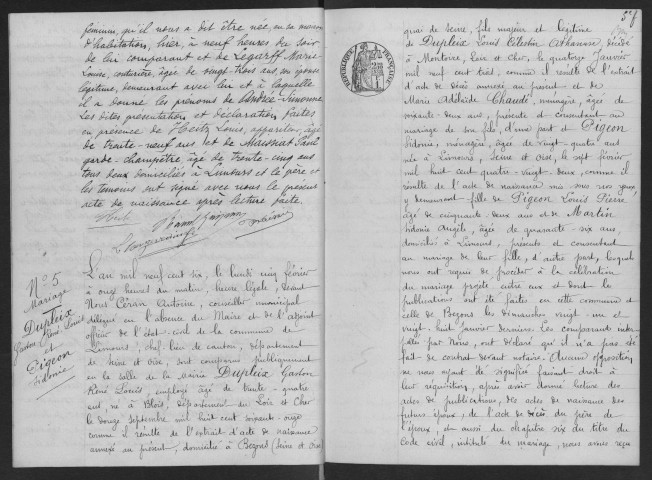 féminin, qu'il nous a dit être née, en sa maison
d'habitation, hier, à neuf heures du soir
de lui comparant et de Legarff Marie
Louise, couturière, âgée de vingt-trois ans son épouse
légitime, demeurant avec lui et à laquelle
il a donné les prénoms de Simonne.
Les dites présentation et déclaration faites
en présence de Heitz Louis, appariteur, âgé
de trente-neuf ans et de Paul
garde-champêtre, âgé de trente-cinq ans
tous deux domiciliés à Limours et le père et
les témoins ont signé avec nous le présent
acte de naissance après lecture faite.
N° 5
Mariage
Dupleix
Gaston René Louis
et
Pigeon
Sidonie
L'an mil neuf cent six, le lundi cinq février
à onze heures du matin, heure légale, devant
Nous Antoine, conseiller municipal
délégué en l'absence du Maire et de l'adjoint
officier de l'état-civil de la commune de
Limours, chef-lieu de canton, département
de Seine et Oise, sont comparus publiquement
en la salle de la mairie Dupleix Gaston
René Louis, employé âgé de trente-quatre
ans, né à Blois, département du Loir et Cher
le douze septembre mil huit cent soixante-onze
comme il résulte de l'extrait d'acte de naissance
annexé au présent, domicilié à Bezons (Seine et Oise)
57
RÉPUBLIQUE FRANÇAISE
quai de Seine, fils majeur et légitime
de Dupleix Louis Célestin Athanase, décédé
à Loir et Cher, le quatorze Janvier
mil neuf cent trois, comme il résulte de l'extrait
d'acte de décès annexé au présent et de
Marie Adélaïde Chaudé, ménagère, âgée de
soixante-deux ans, présente et consentant au
mariage de son fils, d'une part et Pigeon
Sidonie, ménagère, âgée de vingt-quatre ans
née à Limours, Seine et Oise, le sept février
mil huit cent quatre-vingt-deux, comme il
résulte de l'acte de naissance mis sous nos yeux,
y demeurant fille de Pigeon Louis Pierre
âgé de cinquante-deux ans et de Martin
Sidonie Angèle, âgée de quarante-six ans,
domiciliés à Limours, présents et consentant
au mariage de leur fille, d'autre part, lesquels
nous ont requis de procéder à la célébration
du mariage projeté entre eux et dont les
publications ont été faites en cette commune et
celle de Bezons les dimanches vingt-un et
vingt-huit janvier derniers. Les comparants inter-
pellés par Nous, ont déclaré qu'il n'a pas été
fait de contrat devant notaire. Aucune opposition
ne nous ayant été signifiée faisant droit à
leur réquisition, après avoir donné lecture des
actes de publications, des actes de naissance des
futurs époux, de l'acte de décès du père de
l'époux, et aussi du chapitre six du titre du
Code civil, intitulé du mariage, nous avons reçu